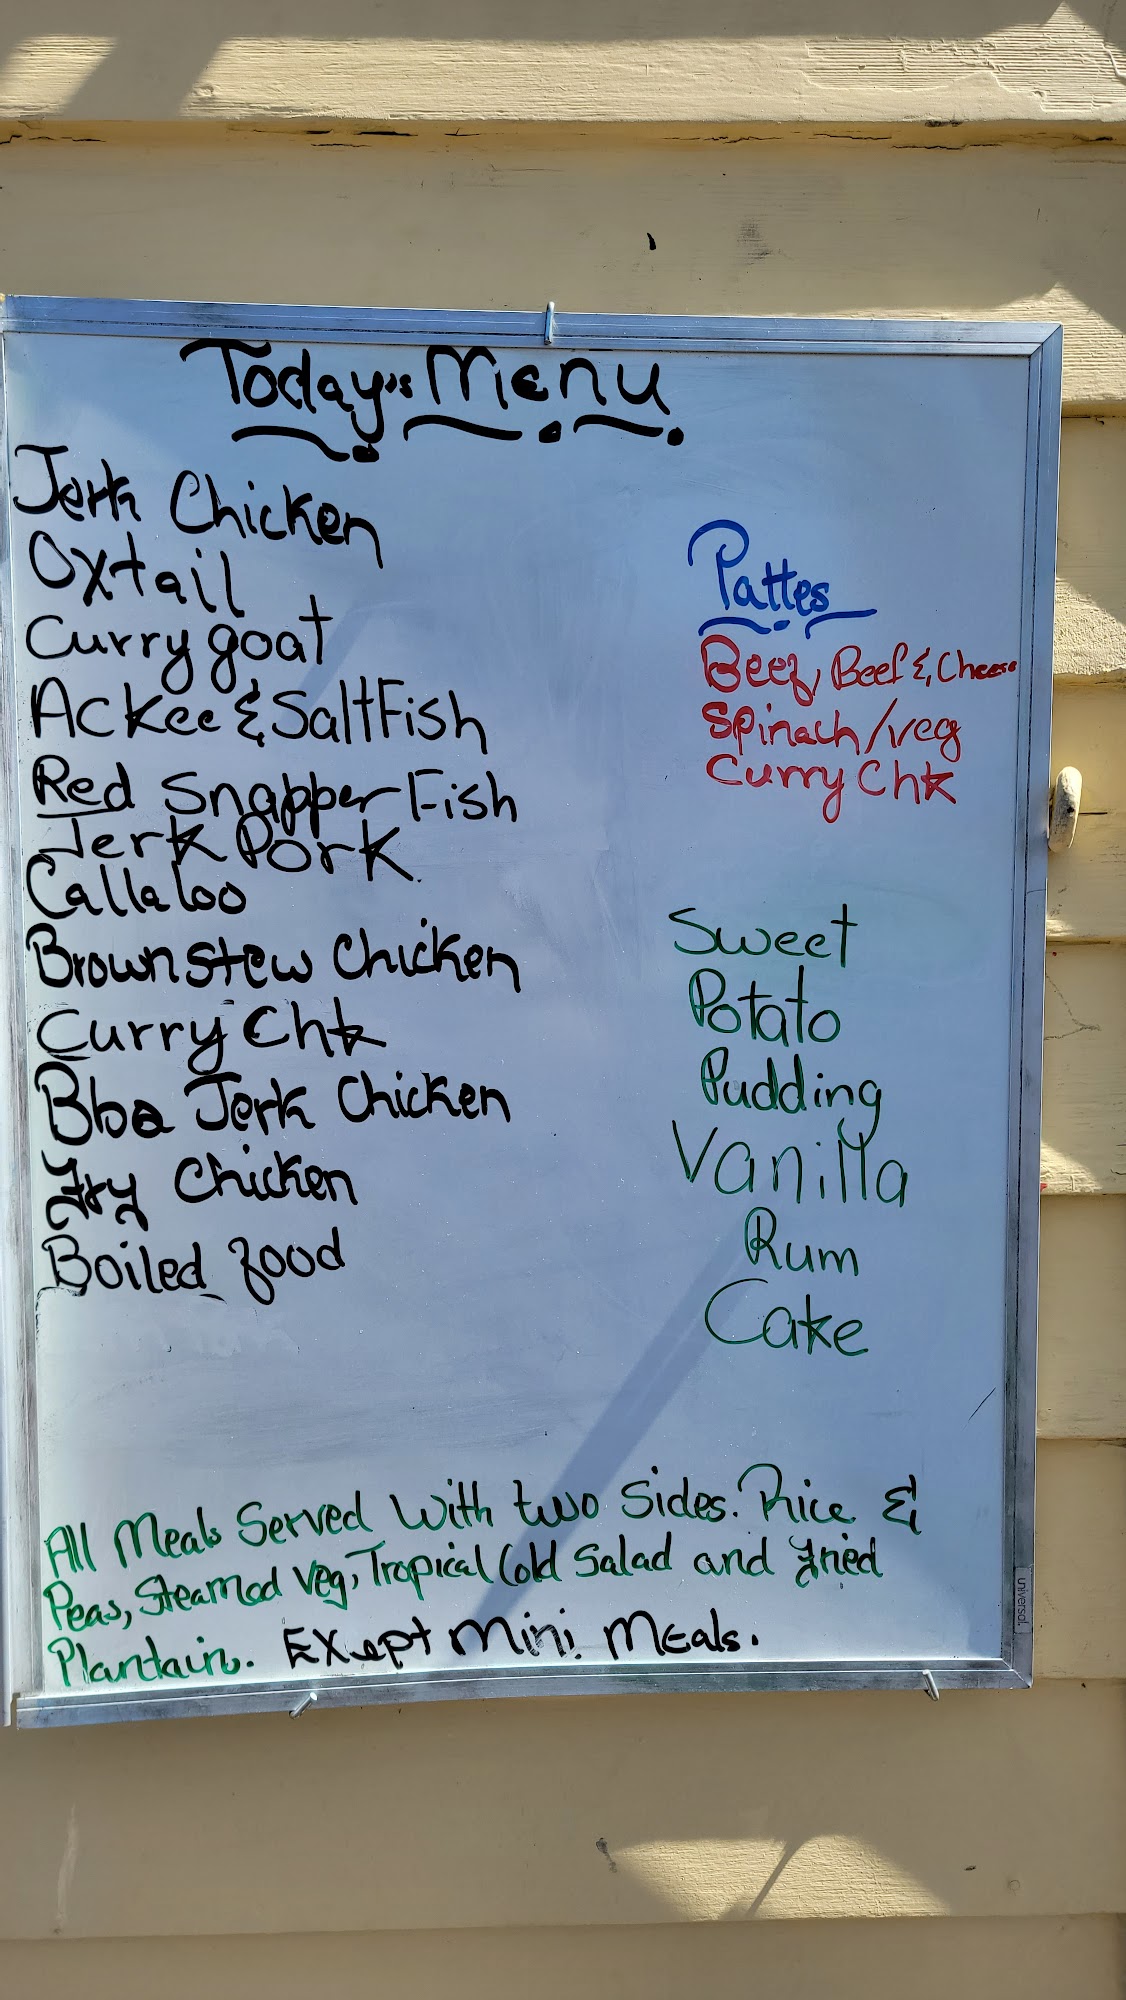 Today's Menu
Jerk Chicken
Oxtail
Curry goat
Ackee & SaltFish
Red Snapper Fish
Jerk Pork
Callaloo
Brown stew Chicken
Curry Chk
Bbq Jerk Chicken
Fry Chicken
Boiled food
Pattes
Beef, Beef & Cheese
Spinach/veg
Curry Chk
Sweet
Potato
Pudding
Vanilla
Rum
Cake
All Meals Served With two Sides. Rice &
Peas, Steamed Veg, Tropical Cold Salad and Fried
Plantain. Exept Mini Meals.
universal